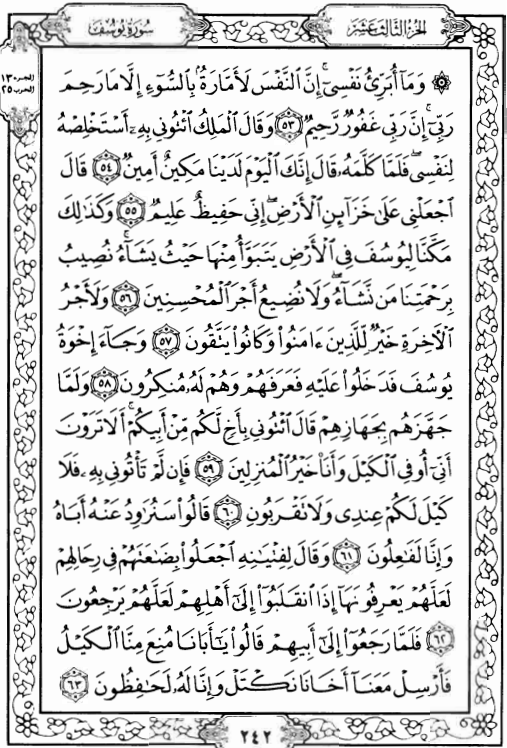 سُورَةُ يُوسُفَ
الجُزْءُ الثَّالِثَ عَشَرَ
الجزء ١٣
الحزب ٢٥
۞ وَمَآ أُبَرِّئُ نَفْسِيٓۚ إِنَّ ٱلنَّفْسَ لَأَمَّارَةُۢ بِٱلسُّوٓءِ إِلَّا مَا رَحِمَ
رَبِّيٓۚ إِنَّ رَبِّي غَفُورٞ رَّحِيمٞ ٥٣ وَقَالَ ٱلْمَلِكُ ٱئْتُونِي بِهِۦٓ أَسْتَخْلِصْهُ
لِنَفْسِيۖ فَلَمَّا كَلَّمَهُۥ قَالَ إِنَّكَ ٱلْيَوْمَ لَدَيْنَا مَكِينٌ أَمِينٞ ٥٤ قَالَ
ٱجْعَلْنِي عَلَىٰ خَزَآئِنِ ٱلْأَرْضِۖ إِنِّي حَفِيظٌ عَلِيمٞ ٥٥ وَكَذَٰلِكَ
مَكَّنَّا لِيُوسُفَ فِي ٱلْأَرْضِ يَتَبَوَّأُ مِنْهَا حَيْثُ يَشَآءُۚ نُصِيبُ
بِرَحْمَتِنَا مَن نَّشَآءُۖ وَلَا نُضِيعُ أَجْرَ ٱلْمُحْسِنِينَ ٥٦ وَلَأَجْرُ
ٱلْأٓخِرَةِ خَيْرٞ لِّلَّذِينَ ءَامَنُواْ وَكَانُواْ يَتَّقُونَ ٥٧ وَجَآءَ إِخْوَةُ
يُوسُفَ فَدَخَلُواْ عَلَيْهِ فَعَرَفَهُمْ وَهُمْ لَهُۥ مُنكِرُونَ ٥٨ وَلَمَّا
جَهَّزَهُم بِجَهَازِهِمْ قَالَ ٱئْتُونِي بِأَخٖ لَّكُم مِّنْ أَبِيكُمْۚ أَلَا تَرَوْنَ
أَنِّيٓ أُوفِي ٱلْكَيْلَ وَأَنَا۠ خَيْرُ ٱلْمُنزِلِينَ ٥٩ فَإِن لَّمْ تَأْتُونِي بِهِۦ فَلَا
كَيْلَ لَكُمْ عِندِي وَلَا تَقْرَبُونِ ٦٠ قَالُواْ سَنُرَٰوِدُ عَنْهُ أَبَاهُ
وَإِنَّا لَفَٰعِلُونَ ٦١ وَقَالَ لِفِتْيَٰنِهِ ٱجْعَلُواْ بِضَٰعَتَهُمْ فِي رِحَالِهِمْ
لَعَلَّهُمْ يَعْرِفُونَهَآ إِذَا ٱنقَلَبُوٓاْ إِلَىٰٓ أَهْلِهِمْ لَعَلَّهُمْ يَرْجِعُونَ
٦٢ فَلَمَّا رَجَعُوٓاْ إِلَىٰٓ أَبِيهِمْ قَالُواْ يَٰٓأَبَانَا مُنِعَ مِنَّا ٱلْكَيْلُ
فَأَرْسِلْ مَعَنَآ أَخَانَا نَكْتَلْ وَإِنَّا لَهُۥ لَحَٰفِظُونَ ٦٣
٢٤٢